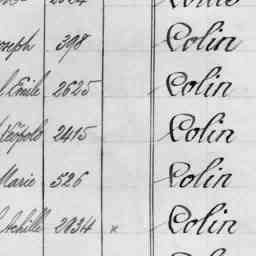 oseph 398 Colin
Emile 2625 Colin
Léopold 2415 Colin
Marie 526 Colin
Achille 2034 x Colin